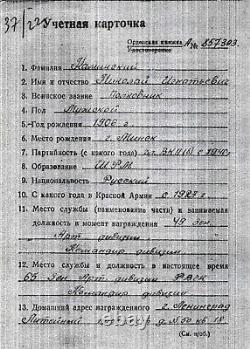 37/22 Учетная карточка
Орденская книжка А№ 857303
Удостоверение
1. Фамилия Каминский
2. Имя и отчество Николай Игнатьевич
3. Воинское звание Полковник
4. Пол Мужской
5. Год рождения 1906 г.
6. Место рождения г. Минск
7. Партийность (с какого года) чл. ВКП(б) с
8. Образование
9. Национальность Русский
10. С какого года в Красной Армии с 1927 г.
11. Место службы (наименование части) и занимаемая
должность в момент награждения 49 Зен.
Арт дивизии
Командир дивизии
12. Место службы и должность в настоящее время
Зен Арт дивизии
Командир дивизии
13. Домашний адрес награжденного г. Ленинград
Литейный д № 60 кв. 18
(См. щоб.)